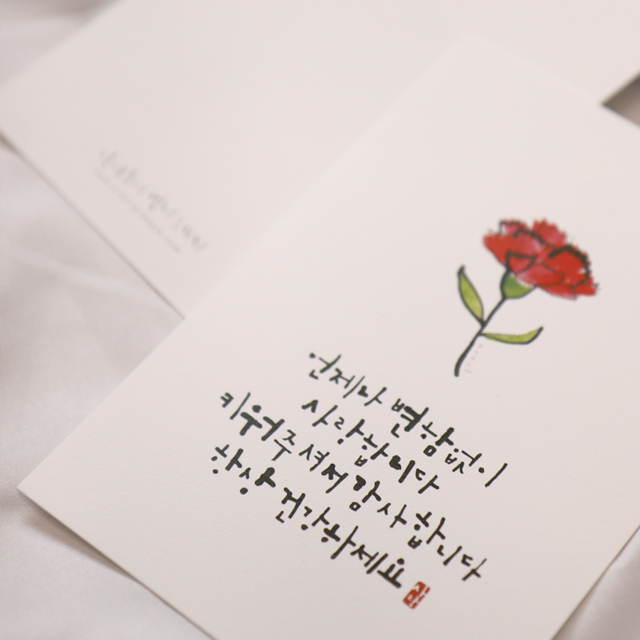 언제나 변함없이
사랑합니다
키워주셔서 감사합니다
항상 건강하세요